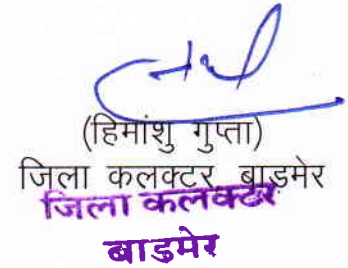 (हिमांशु गुप्ता)
जिला कलक्टर बाड़मेर
जिला कलक्टर
बाडमेर